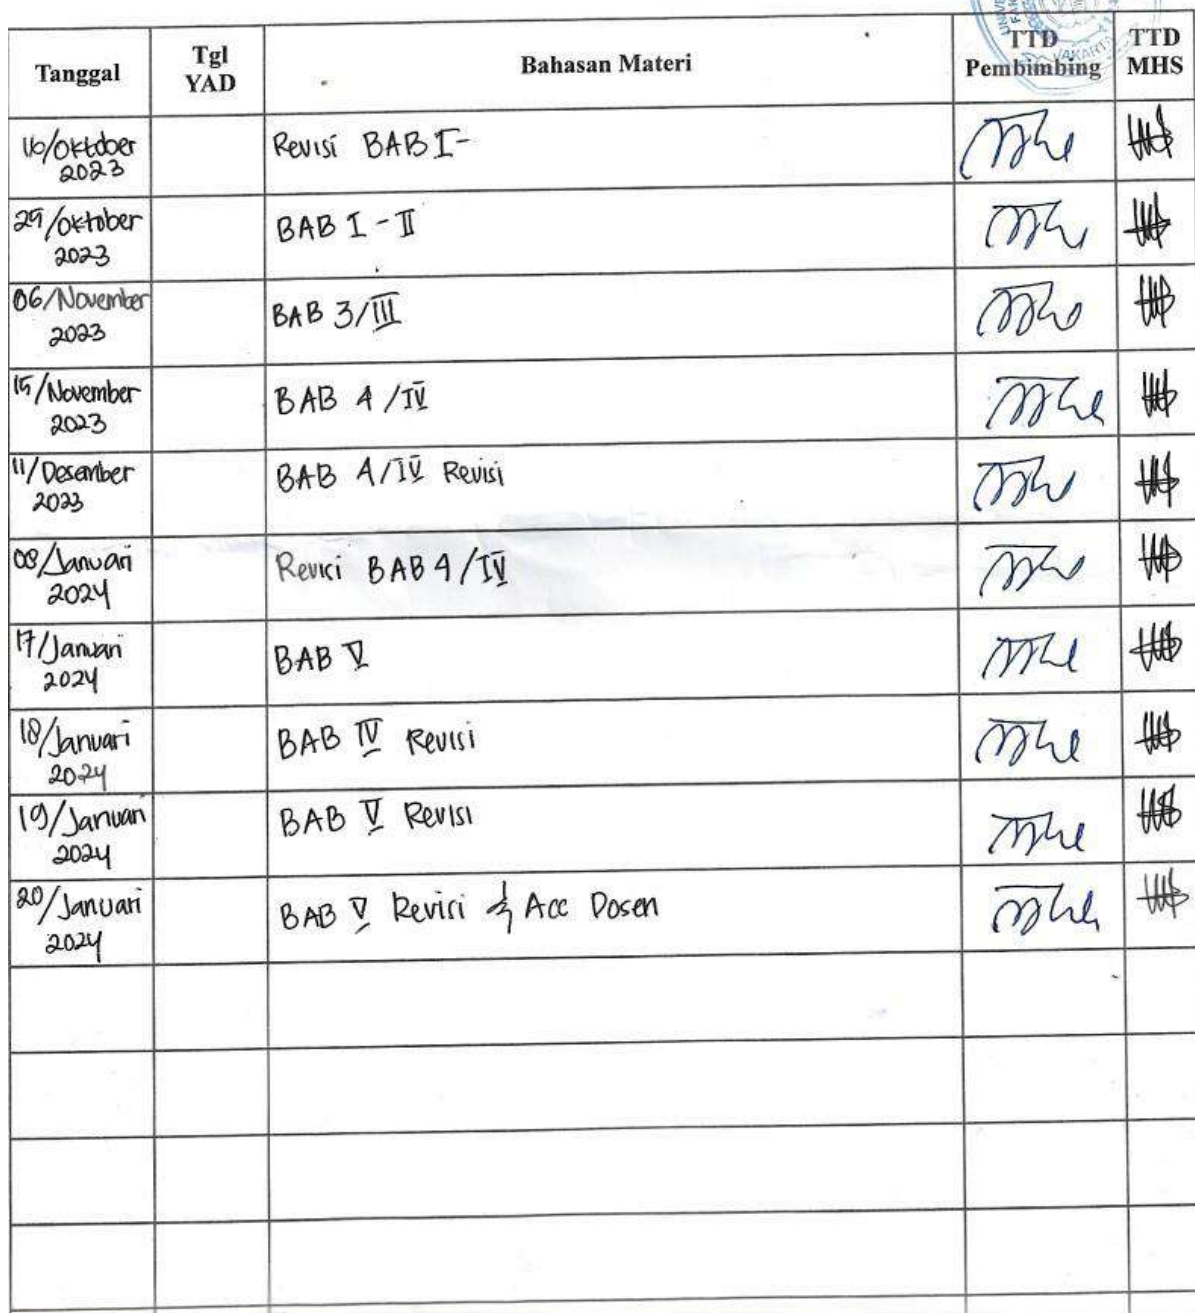 UNIVE
JAKARTA
Tanggal
Tgl
YAD
Bahasan Materi
TTD
Pembimbing
TTD
MHS
16/Oktober
2023
Revisi BAB I-
29/Oktober
2023
BAB I - II
06/November
2023
BAB 3/III
15/November
2023
BAB 4/IV
11/Desember
2023
BAB 4/IV Revisi
08/Januari
2024
Revisi BAB 4/IV
17/Januari
2024
BAB V
18/Januari
2024
BAB IV Revisi
19/Januari
2024
BAB V Revisi
20/Januari
2024
BAB V Revisi & Acc Dosen